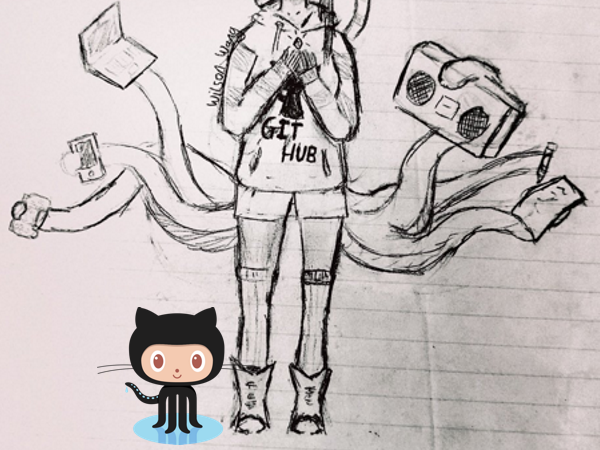 Wilson Wong
GIT
HUB